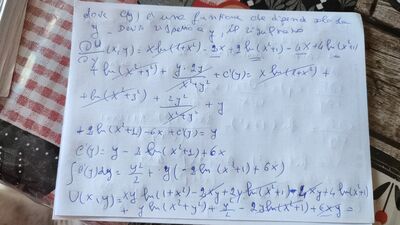 dove C(y) è una funzione che dipende solo da
y. Derivo rispetto a y, il risultato
∂U/∂y (x,y) = x ln(1+x²) - 2x + 2 ln(x²+1) - 4x + 4 ln(x²+1)
+ ln(x²+y²) + y·2y/(x²+y²) + C'(y) = x ln(1+x²) +
+ ln(x²+y²) + 2y²/(x²+y²) + y
+ 2 ln(x²+1) - 6x + C'(y) = y
C'(y) = y - 2 ln(x²+1) + 6x
∫C'(y)dy = y²/2 + y(-2 ln(x²+1) + 6x)
U(x,y) = xy ln(1+x²) - 2xy + 2y ln(x²+1) - 4xy + 4 ln(x²+1)
+ y ln(x²+y²) + y²/2 - 2y ln(x²+1) + 6xy =